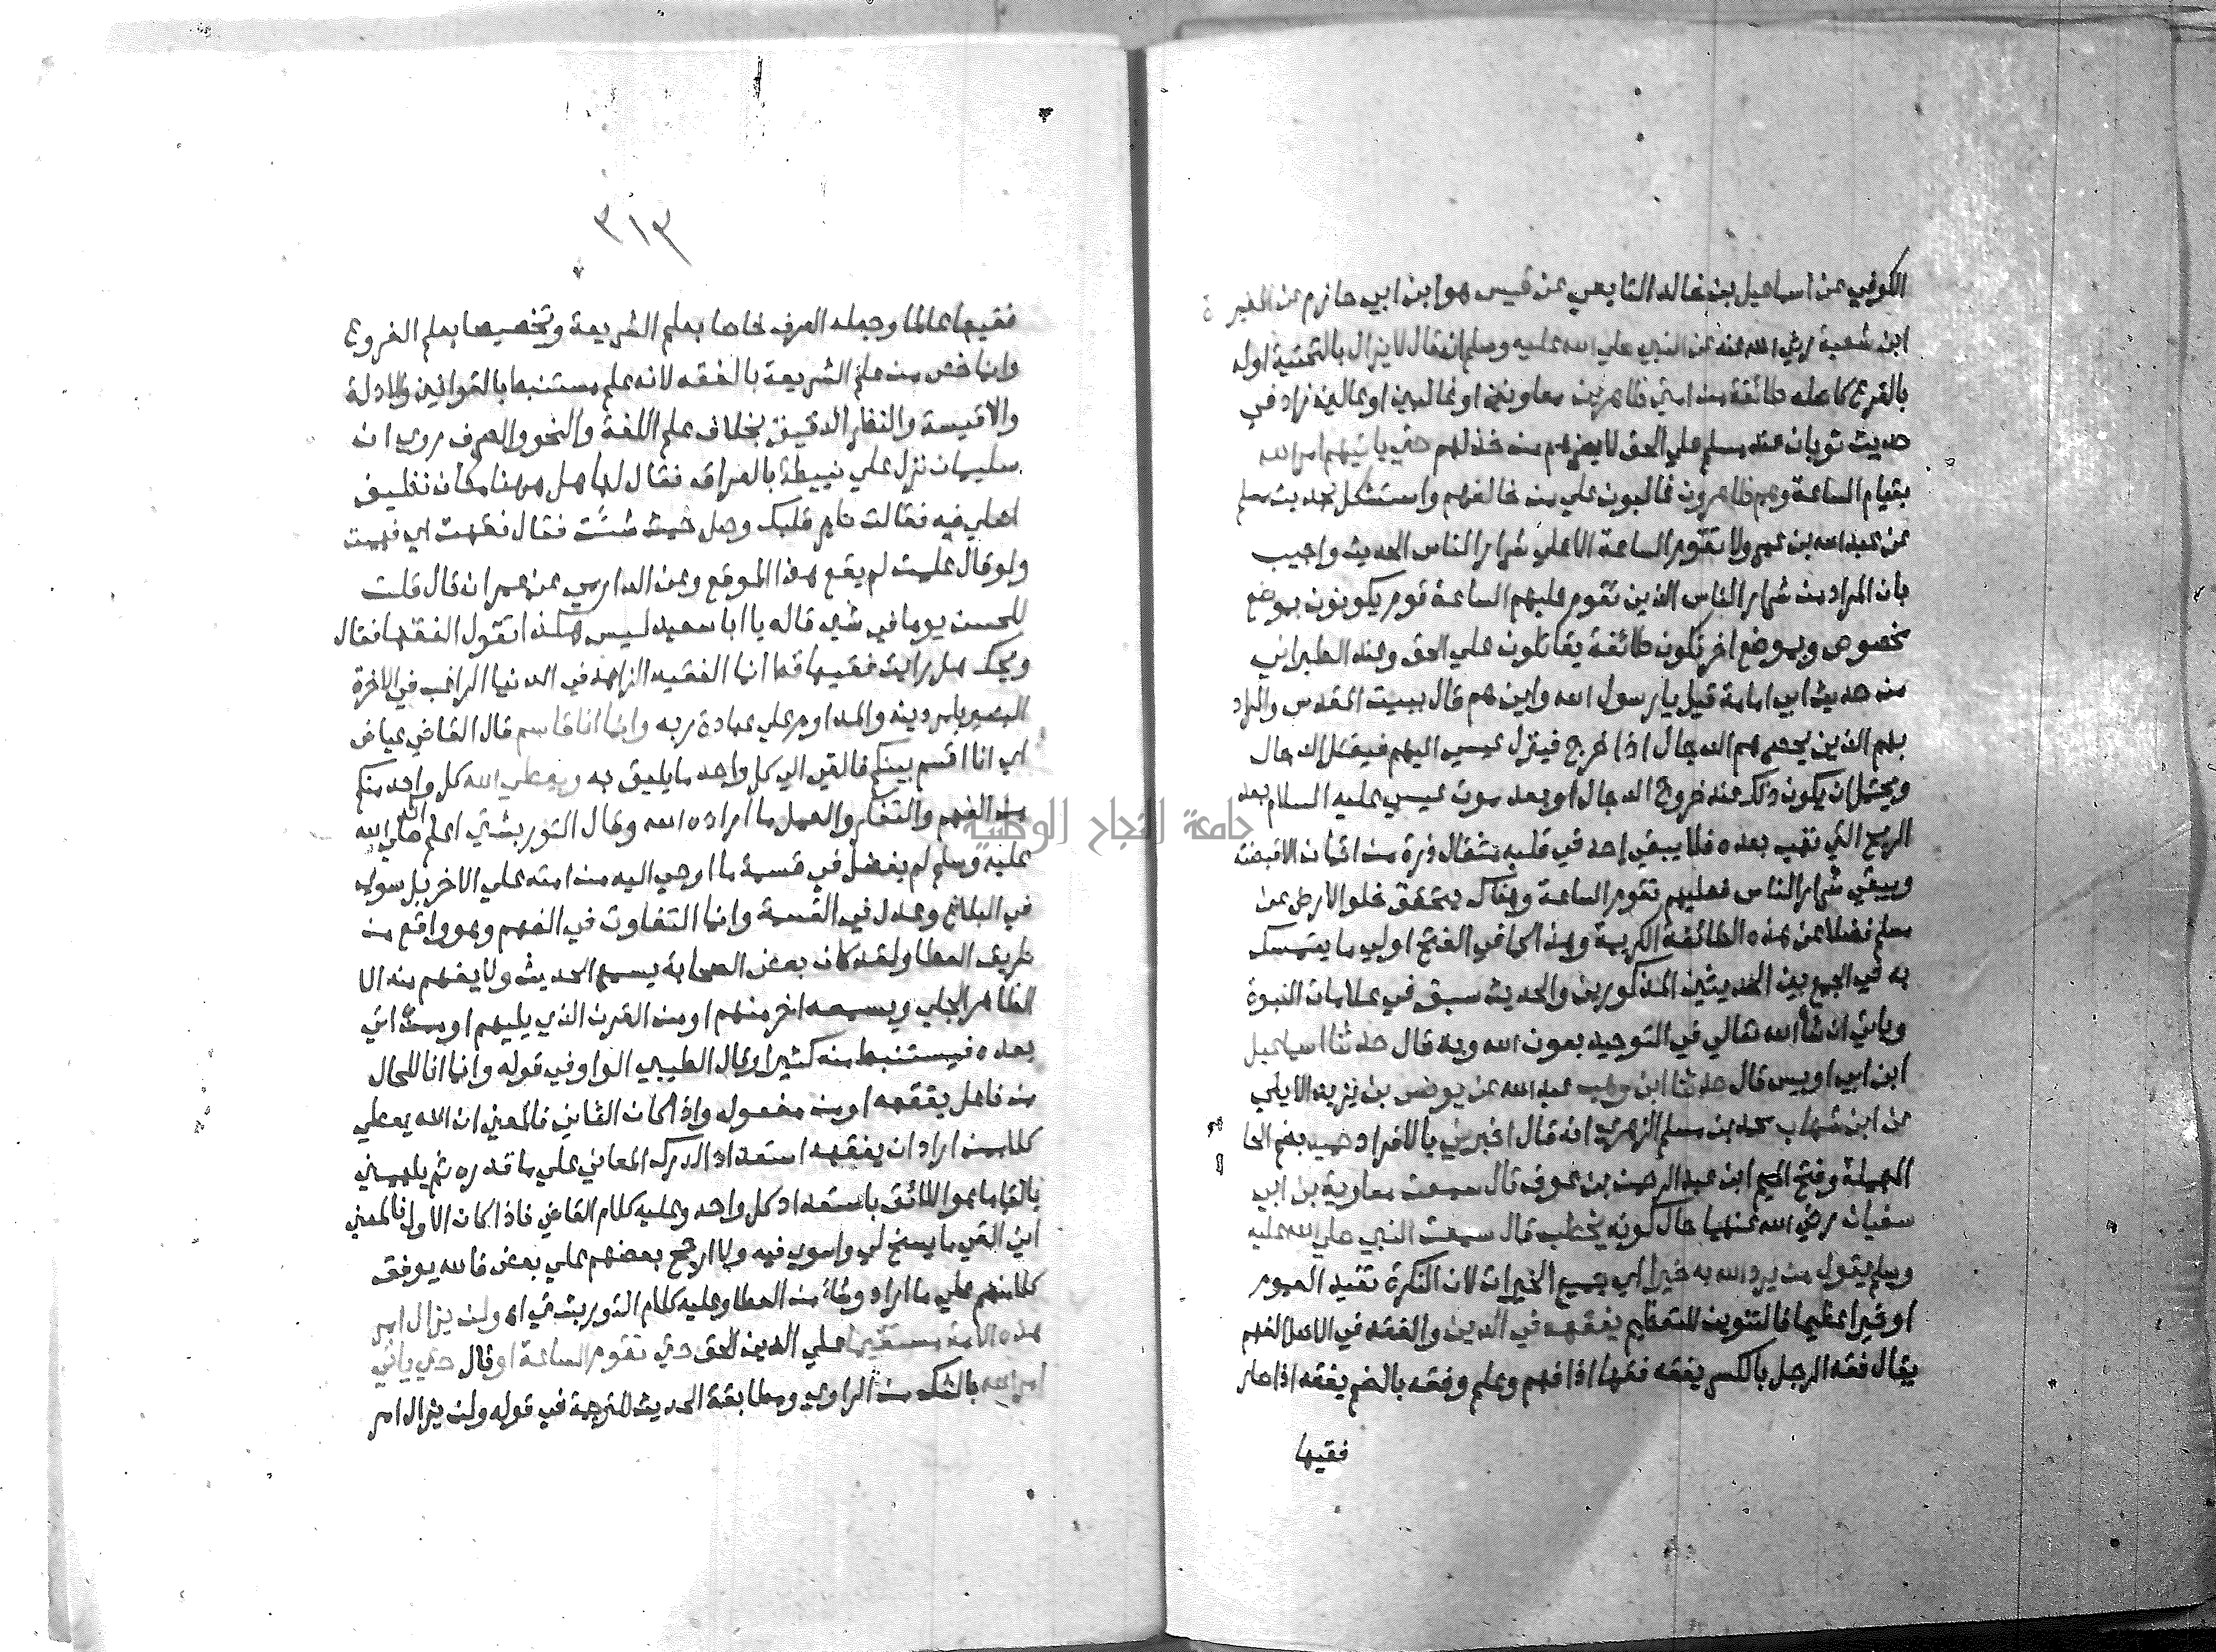 الكوفي عن اسماعيل بن خالد التابعي عن قيس هو ابن ابي حازم عن المغيرة
ابن شعبة رضي الله عنه عن النبي صلي الله عليه وسلم انه قال لا يزال بالتحتية اوله
بالفرع كاصله طائفة من امتي ظاهرين معاونين او غالبين او عالين زاد في
حديث ثوبان عند مسلم علي الحق لا يضرهم من خذلهم حتي ياتيهم امر الله
بقيام الساعة وهم ظاهرون غالبون علي من خالفهم واستشكل بحديث مسلم
عن عبد الله بن عمرو لا تقوم الساعة الا علي شرار الناس الحديث واجيب
بان المراد من شرار الناس الذين تقوم عليهم الساعة قوم يكونون بموضع
مخصوص وبموضع اخر تكون طائفة يقاتلون علي الحق وعند الطبراني
من حديث ابي امامة قيل يا رسول الله واين هم قال ببيت المقدس والمراد
بهم الذين يحصرهم الدجال اذا خرج فينزل عيسي اليهم فيقتل الدجال
ويحتمل ان يكون ذلك عند خروج الدجال او بعد موت عيسي عليه السلام بعد
الريح التي تهب بعده فلا يبقي احد في قلبه مثقال ذرة من ايمان الا قبضته
ويبقي شرار الناس فعليهم تقوم الساعة وهناك يتحقق خلو الارض عن
مسلم فضلا عن هذه الطائفة الكريمة وهذا كما في الفتح اولي ما يتمسك
به في الجمع بين الحديثين المذكورين والحديث سبق في علامات النبوة
وياتي ان شاء الله تعالي في التوحيد بعون الله وبه قال حدثنا اسماعيل
ابن ابي اويس قال حدثنا ابن وهب عبد الله عن يونس بن يزيد الايلي
عن ابن شهاب محمد بن مسلم الزهري انه قال اخبرني بالافراد حميد بضم الحا
المهملة وفتح الميم ابن عبد الرحمن بن عوف قال سمعت معاوية بن ابي
سفيان رضي الله عنهما حال كونه يخطب قال سمعت النبي صلي الله عليه
وسلم يقول من يرد الله به خيرا اي جميع الخيرات لان النكرة تفيد العموم
او خيرا عظيما فالتنوين للتعظيم يفقهه في الدين والفقه في الاصل الفهم
يقال فقه الرجل بالكسر يفقه فقها اذا فهم وعلم وفقه بالضم يفقه اذا صار
فقيها
٣١٣
فقيها عالما وجعله العرف خاصا بعلم الشريعة وتخصيصا بعلم الفروع
وانما خص من علم الشريعة بالفقه لانه علم مستنبط بالقوانين والادلة
والاقيسة والنظر الدقيق بخلاف علم اللغة والنحو والصرف روي ان
سليمان نزل علي نبيطة بالعراق فقال لها هل ههنا مكان نظيف
اصلي فيه فقالت طهر قلبك وصل حيث شئت فقال فقهت اي فهمت
ولو قال علمت لم يقع هذا الموقع وعن الدارمي عن عمران قال قلت
للحسن يوما في شي قاله يا ابا سعيد ليس هكذا تقول الفقها فقال
ويحك هل رايت فقيها قط انما الفقيه الزاهد في الدنيا الراغب في الاخرة
البصير بامر دينه والمداوم علي عبادة ربه وانما انا قاسم قال القاضي عياض
اي انا اقسم بينكم فالقي الي كل واحد ما يليق به ويعطي الله كل واحد منكم
من الفهم والتفكر والعمل ما اراده الله وقال التوربشتي اعلم انه صلي الله
عليه وسلم لم يفضل في قسمة ما اوحي اليه من امته علي الاخر بل سوي
في البلاغ وعدل في القسمة وانما التفاوت في الفهم وهو واقع من
طريق العطا ولقد كان بعض الصحابة يسمع الحديث ولا يفهم منه الا
الظاهر الجلي ويسمعه اخر منهم او من القرن الذي يليهم او ممن اتي
بعده فيستنبط منه كثيرا وقال الطيبي الواو في قوله وانما انا للحال
من فاعل يفقهه او من مفعوله واذا كان الثاني فالمعني ان الله يعطي
كلا ممن اراد ان يفقهه استعدادا لدرك المعاني علي ما قدره ثم يلهمني
بالقا ما هو اللائق باستعداد كل واحد وعليه كلام القاضي فاذا كان الاول فالمعني
اني القي ما يسنح لي واسوي فيه ولا ارجح بعضهم علي بعض فالله يوفق
كلا منهم علي ما اراد وشاء من العطا وعليه كلام التوربشتي اه ولن يزال امر
هذه الامة مستقيما علي الدين الحق حتي تقوم الساعة او قال حتي ياتي
امر الله بالشك من الراوي ومطابقة الحديث للترجمة في قوله ولن يزال امر
جامعة النجاح الوطنية